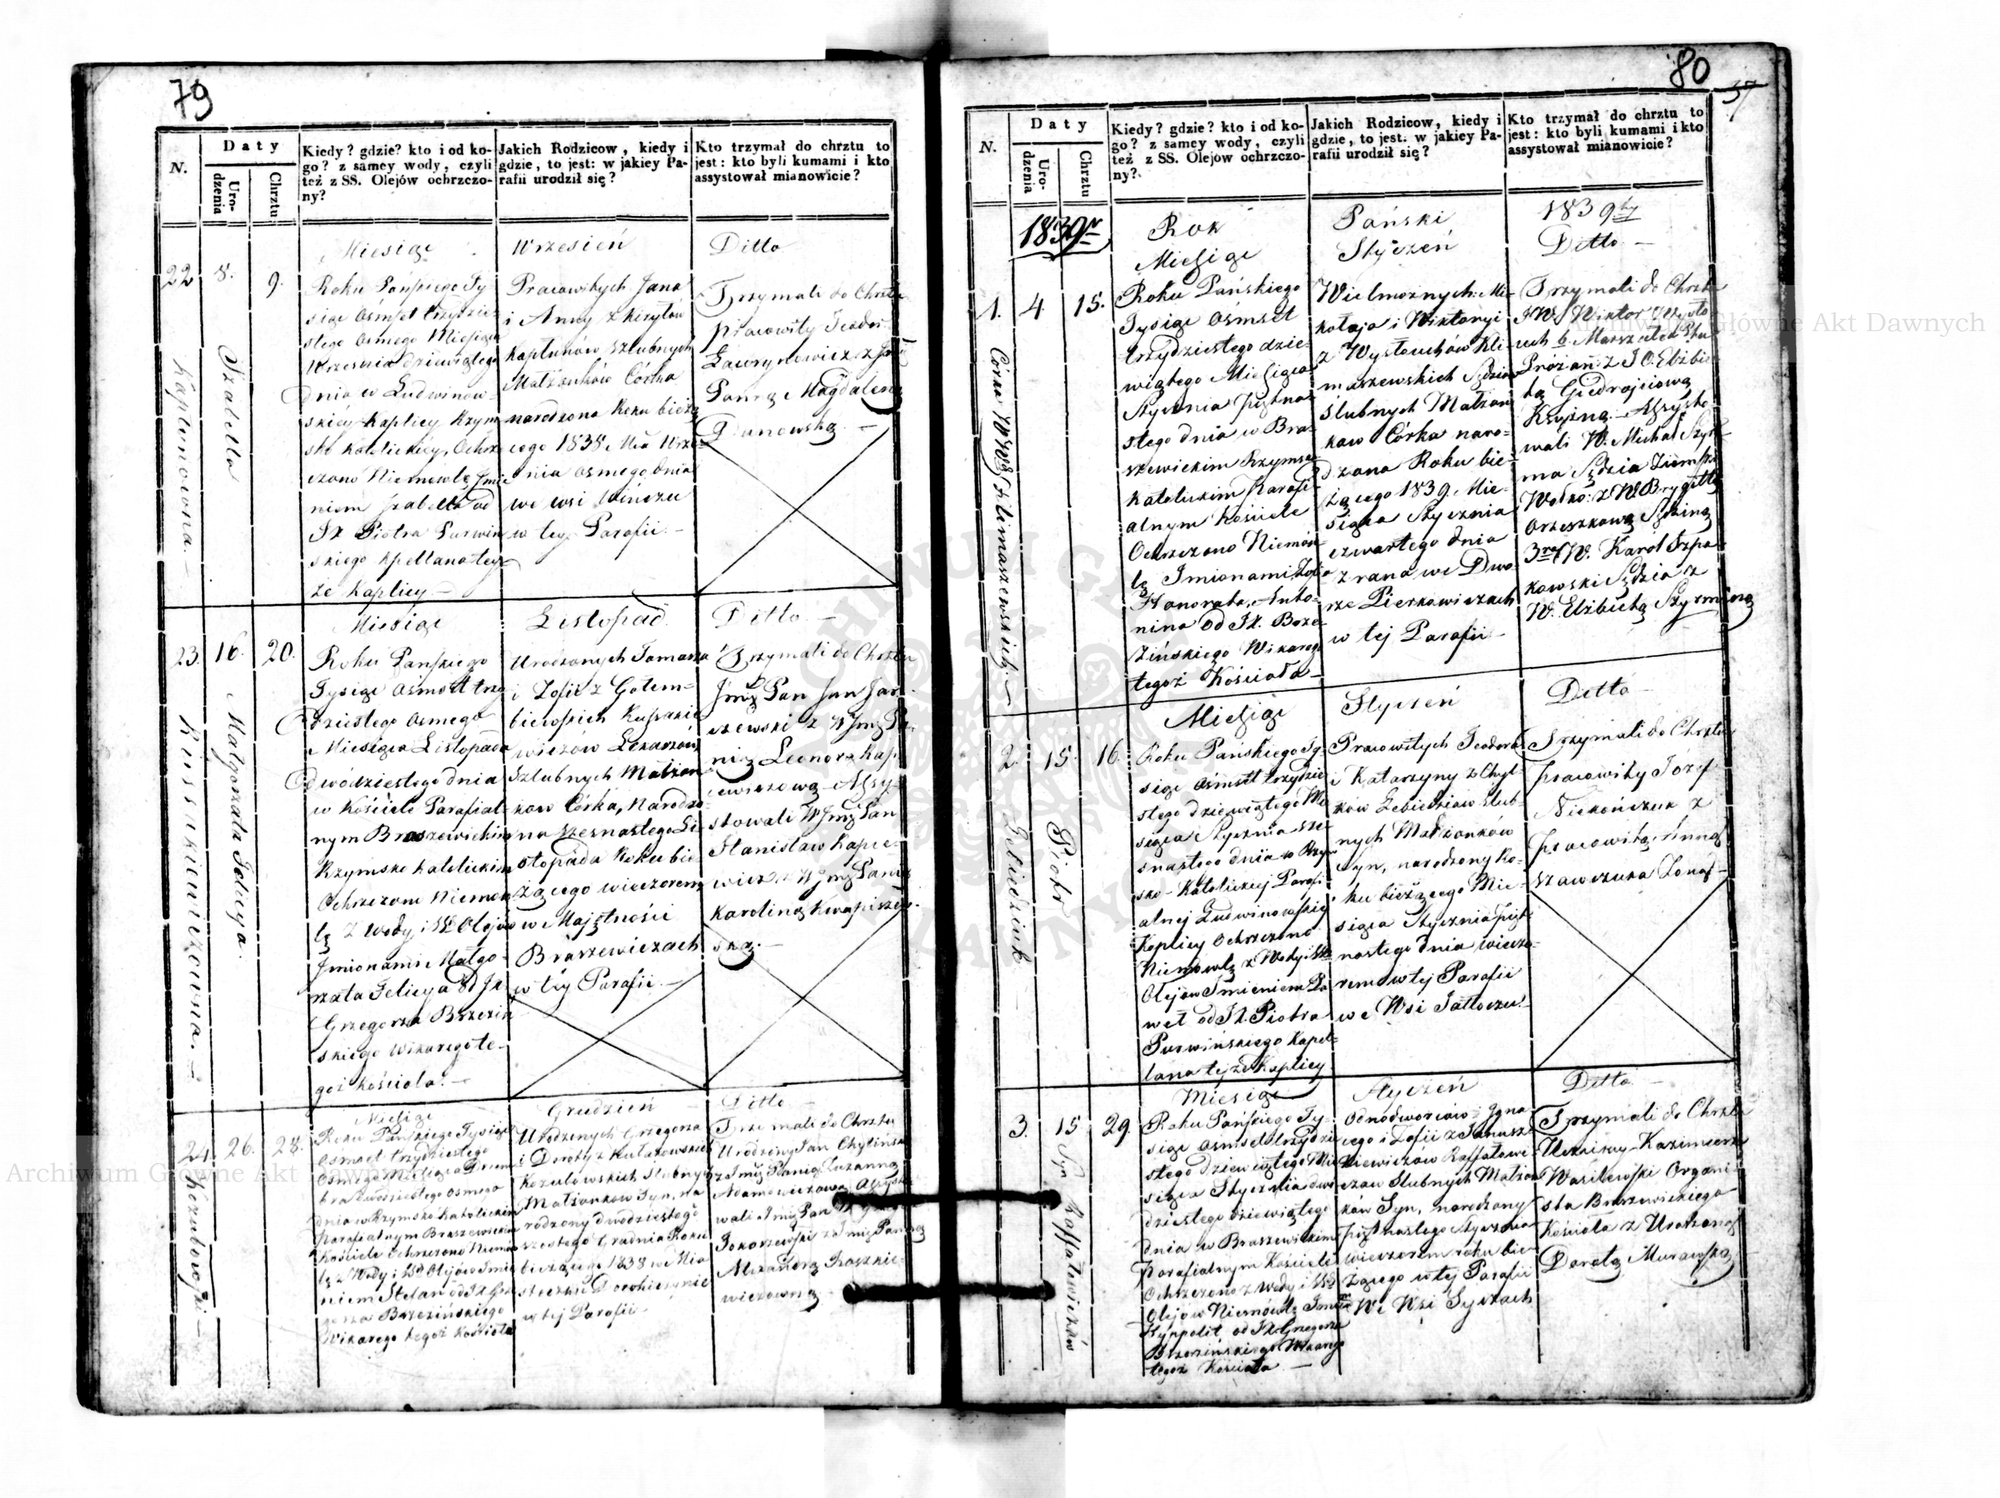 79
N.
Daty
Urodzenia
Chrztu
Kiedy? gdzie? kto i od ko-
go? z samey wody, czyli
też z SS. Olejów ochrzczo-
ny?
Jakich Rodzicow, kiedy i
gdzie, to jest: w jakiey Pa-
rafii urodził się?
Kto trzymał do chrztu to
jest: kto byli kumami i kto
assystował mianowicie?
Miesiąc
Wrzesień
Ditto
22
8.
9.
Kaplunowna.
Izabella
Roku Pańskiego Ty
siąc Ośmset trzydzie
stego Osmego Miesiąca
Września dziewiątego
dnia w Ludwinow-
skiéy Kaplicy Rzym
sko katolickiéy, Ochrz
czono Niemowlę Imie
niem Izabella od
Jx Piotra Purwin
skiego Kpellana tey
że Kaplicy
Pracowitych Jana
i Anny z Kiryłów
Kaplunów Szlubnych
Małżonków Córka
narodzona Roku bieżą
cego 1838 Mca Wrze
śnia osmego dnia
we wsi
w tey Parafii.
Trzymali do Chrztu
pracowity Teodor
Ławrynowicz z
Panną Magdaleną
Miesiąc
Listopad
Ditto
23.
16.
20.
Małgorzata Felicya.
Roku Pańskiego
Tysiąc Ośmset trzy
dziestego Osmego
Miesiąca Listopada
dwódziestego dnia
w Kościele Parafial
nym Braszewickim
Rzymsko katolickim
Ochrzczono Niemow
lę z Wody i SS Olejów
Imionami Małgo-
rzata Felicya od Jx
Grzegorza Brzeziń
skiego Wikarego te-
goż Kościoła.
Urodzonych Tomasza
i Zofii z Gołem-
biewskich
Szlubnych Małżon
kow Córka, Narodzo-
na Szesnastego Li-
stopada Roku bie
żącego wieczorem
w Majętności
Braszewiczach
w téy Parafii
Trzymali do Chrztu
Jmć Pan Jan Jar-
szewski z WJmć Pa-
nią Leonorą Kap
cewiczową Assy-
stowali WJmć Pan
Stanisław Kapce-
wicz z WJmć Panią
Karoliną Kwapiszew-
ską.
Miesiąc
Grudzień
Ditto
24.
26.
28.
Kozubowski
Roku Pańskiego Tysiąc
Ośmset trzydziestego
Osmego Miesiąca Decem
bra dwudziestego osmego
dnia w Rzymsko Katolickim
Parafialnym Braszewickim
Kościele Ochrzczono Niemow
lę z Wody i SS Olejów Imie
niem Stefan od Jx Grze
gorza Brzezińskiego
Wikarego tegoż Kościoła
Urodzonych Grzegorza
i Doroty z Kułakowskich
Kozubowskich Szlubnych
Małżonkow Syn, na
rodzony dwudziestego
szostego Grudnia Roku
bieżącego 1838 we Mia
steczku Dorohiczynie
w tej Parafii
Trzymali do Chrztu
Urodzony Jan Chyliński
z Jmć Panią Zuzanną
Adamowiczową Assysto
wali Jmć Pan
z Jmć Panną
Alexandrą Iwaszkie-
wiczowną
80
37
N.
Daty
Urodzenia
Chrztu
Kiedy? gdzie? kto i od ko-
go? z samey wody, czyli
też z SS. Olejow ochrzczo-
ny?
Jakich Rodzicow, kiedy i
gdzie, to jest: w jakiey Pa-
rafii urodził się?
Kto trzymał do chrztu to
jest: kto byli kumami i kto
assystował mianowicie?
1839r
Rok
Pański
1839ty
Miesiąc
Styczeń
Ditto.
1.
4.
15.
Córka WWch Klimaszewskich.
Roku Pańskiego
Tysiąc Ośmset
trzydziestego dzie-
wiątego Miesiąca
Stycznia piętna
stego dnia w Bra-
szewickim Rzymsko
Katolickim Parafi-
alnym Kościele
Ochrzczono Niemow-
lę Imionami Zofia
Honorata, Anto-
nina od Jx. Brze-
zińskiego Wikarego
tegoż Kościoła
Wielmożnych: Mi-
kołaja i Wiktoryi
z Wysłouchów Kli-
maszewskich Sędziów
Ślubnych Małżon
kow Córka naro-
dzona Roku bie-
żącego 1839. Mie-
siąca Stycznia
czwartego dnia
z rana we Dwo
rze Pierkowiczach
w tej Parafii
Trzymali do Chrztu
JW. Wiktor Wysło
uch b. Marszałek Ptu
Prużań: z JO. Elżbie
tą Giedrojciową
Xiężną - Assysto
wali W. Michał Szyr-
ma Sędzia Ziemski
z W. Brygittą
Orzeszkową Sędziną
3cia W. Karol Szpa-
kowski Sędzia z
W. Elżbietą Szyrminą
Miesiąc
Styczeń
Ditto
2.
15.
16.
Piotr
Roku Pańskiego Ty-
siąc Ośmset trzydzie
stego dziewiątego Mie
siąca Stycznia sze-
snastego dnia w Rzym
sko-Katolickiej Parafi
alnej Ludwinowskiéy
Kaplicy Ochrzczono
Niemowlę z Wody i SS.
Olejow Imieniem Pa
weł od Jx. Piotra
Purwińskiego Kapel-
lana tejże Kaplicy
Pracowitych Teodora
i Katarzyny z Chyl-
kow Lebiedziow Ślub-
nych Małżonków
Syn, narodzony Ro-
ku bieżącego Mie-
siąca Stycznia pięt-
nastego dnia wieczo-
rem w tej Parafii
we Wsi
Trzymali do Chrztu
pracowity Jozef
z
pracowitą Anną
Miesiąc
Styczeń
Ditto
3.
15
29.
Syn Raffałowiczów
Roku Pańskiego Ty-
siąc Ośmset trzydzie
stego dziewiątego Mie
siąca Stycznia dwu
dziestego dziewiątego
dnia w Braszewickim
Parafialnym Kościele
Ochrzczono z Wody i SS
Olejow Niemowlę Imie
Hyppolit, od Jx. Grzegorza
Brzezińskiego Wikarego
tegoż Kościoła
Odnódworców Igna
cego i Zofii z Janusz-
kiewiczów Raffałowi-
czow Ślubnych Małżon
ków Syn, narodzony
piętnastego Stycznia
wieczorem roku bie-
żącego w tej Parafii
We Wsi Syczach
Trzymali do Chrztu
Uczciwy Kazimierz
Wasilewski Organi-
sta Braszewickiego
Kościoła z Urodzoną
Dorotą Murawską
Archiwum Główne Akt Dawnych
Archiwum Główne Akt Dawnych